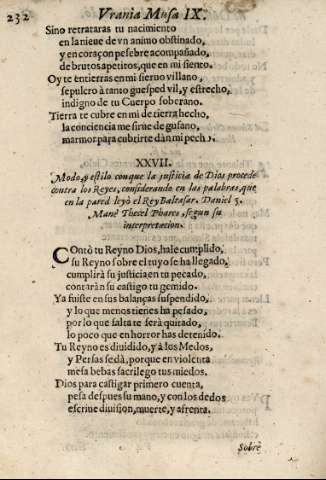 232
Vrania Musa IX.
Sino retrataras tu nacimiento
en la nieue de vn animo obstinado,
y en coraçon pesebre acompañado,
de brutos apetitos, que en mi siento.
Oy te entierras en mi sieruo villano,
sepulcro à tanto guesped vil, y estrecho,
indigno de tu Cuerpo soberano.
Tierra te cubre en mi de tierra hecho,
la conciencia me sirue de gusano,
marmor para cubrirte dàn mi pecho.
XXVII.
Modo, y estilo con que la justicia de Dios procede
contra los Reyes, considerando en las palabras, que
en la pared leyò el Rey Baltasar. Daniel 5.
Manè Thecel Phares, segun su
interpretacion.
Contò tu Reyno Dios, hale cumplido,
su Reyno sobre el tuyo se ha llegado,
cumplirà su justicia en tu pecado,
contaràn su castigo tu gemido.
Ya fuiste en sus balanças suspendido,
y lo que menos tienes ha pesado,
por lo que falta te serà quitado,
lo poco que en horror has detenido.
Tu Reyno es diuidido, y à los Medos,
y Persas se dà, porque en violenta
mesa bebas sacrilego tus miedos.
Dios para castigar primero cuenta,
pesa despues su mano, y con los dedos
escriue diuision, muerte, y afrenta.
Sobre